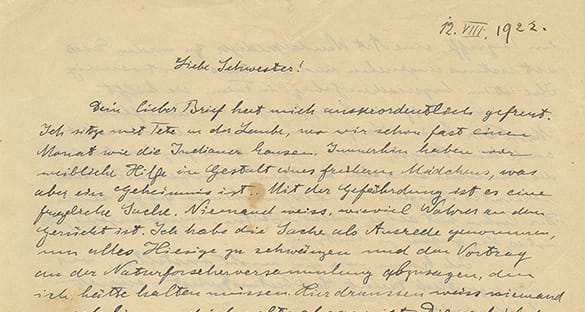 12. VIII. 1922.
Liebe Schwester!
Dein lieber Brief hat mich ausserordentlich gefreut.
Ich sitze mit Tete in der Laube, wo wir schon fast einen
Monat wie die Indianer hausen. Immerhin haben wir
weibliche Hilfe in Gestalt eines früheren Mädchens, was
aber ein Geheimnis ist. Mit der Gefährdung ist es eine
fragliche Sache. Niemand weiss, wieviel Wahres an dem
Gerücht ist. Ich habe die Sache als Ausrede genommen,
um alles Hiesige zu schwänzen und den Vortrag
an der Naturforscherversammlung abzusagen, den
ich hätte halten müssen. Hier draussen weiss niemand